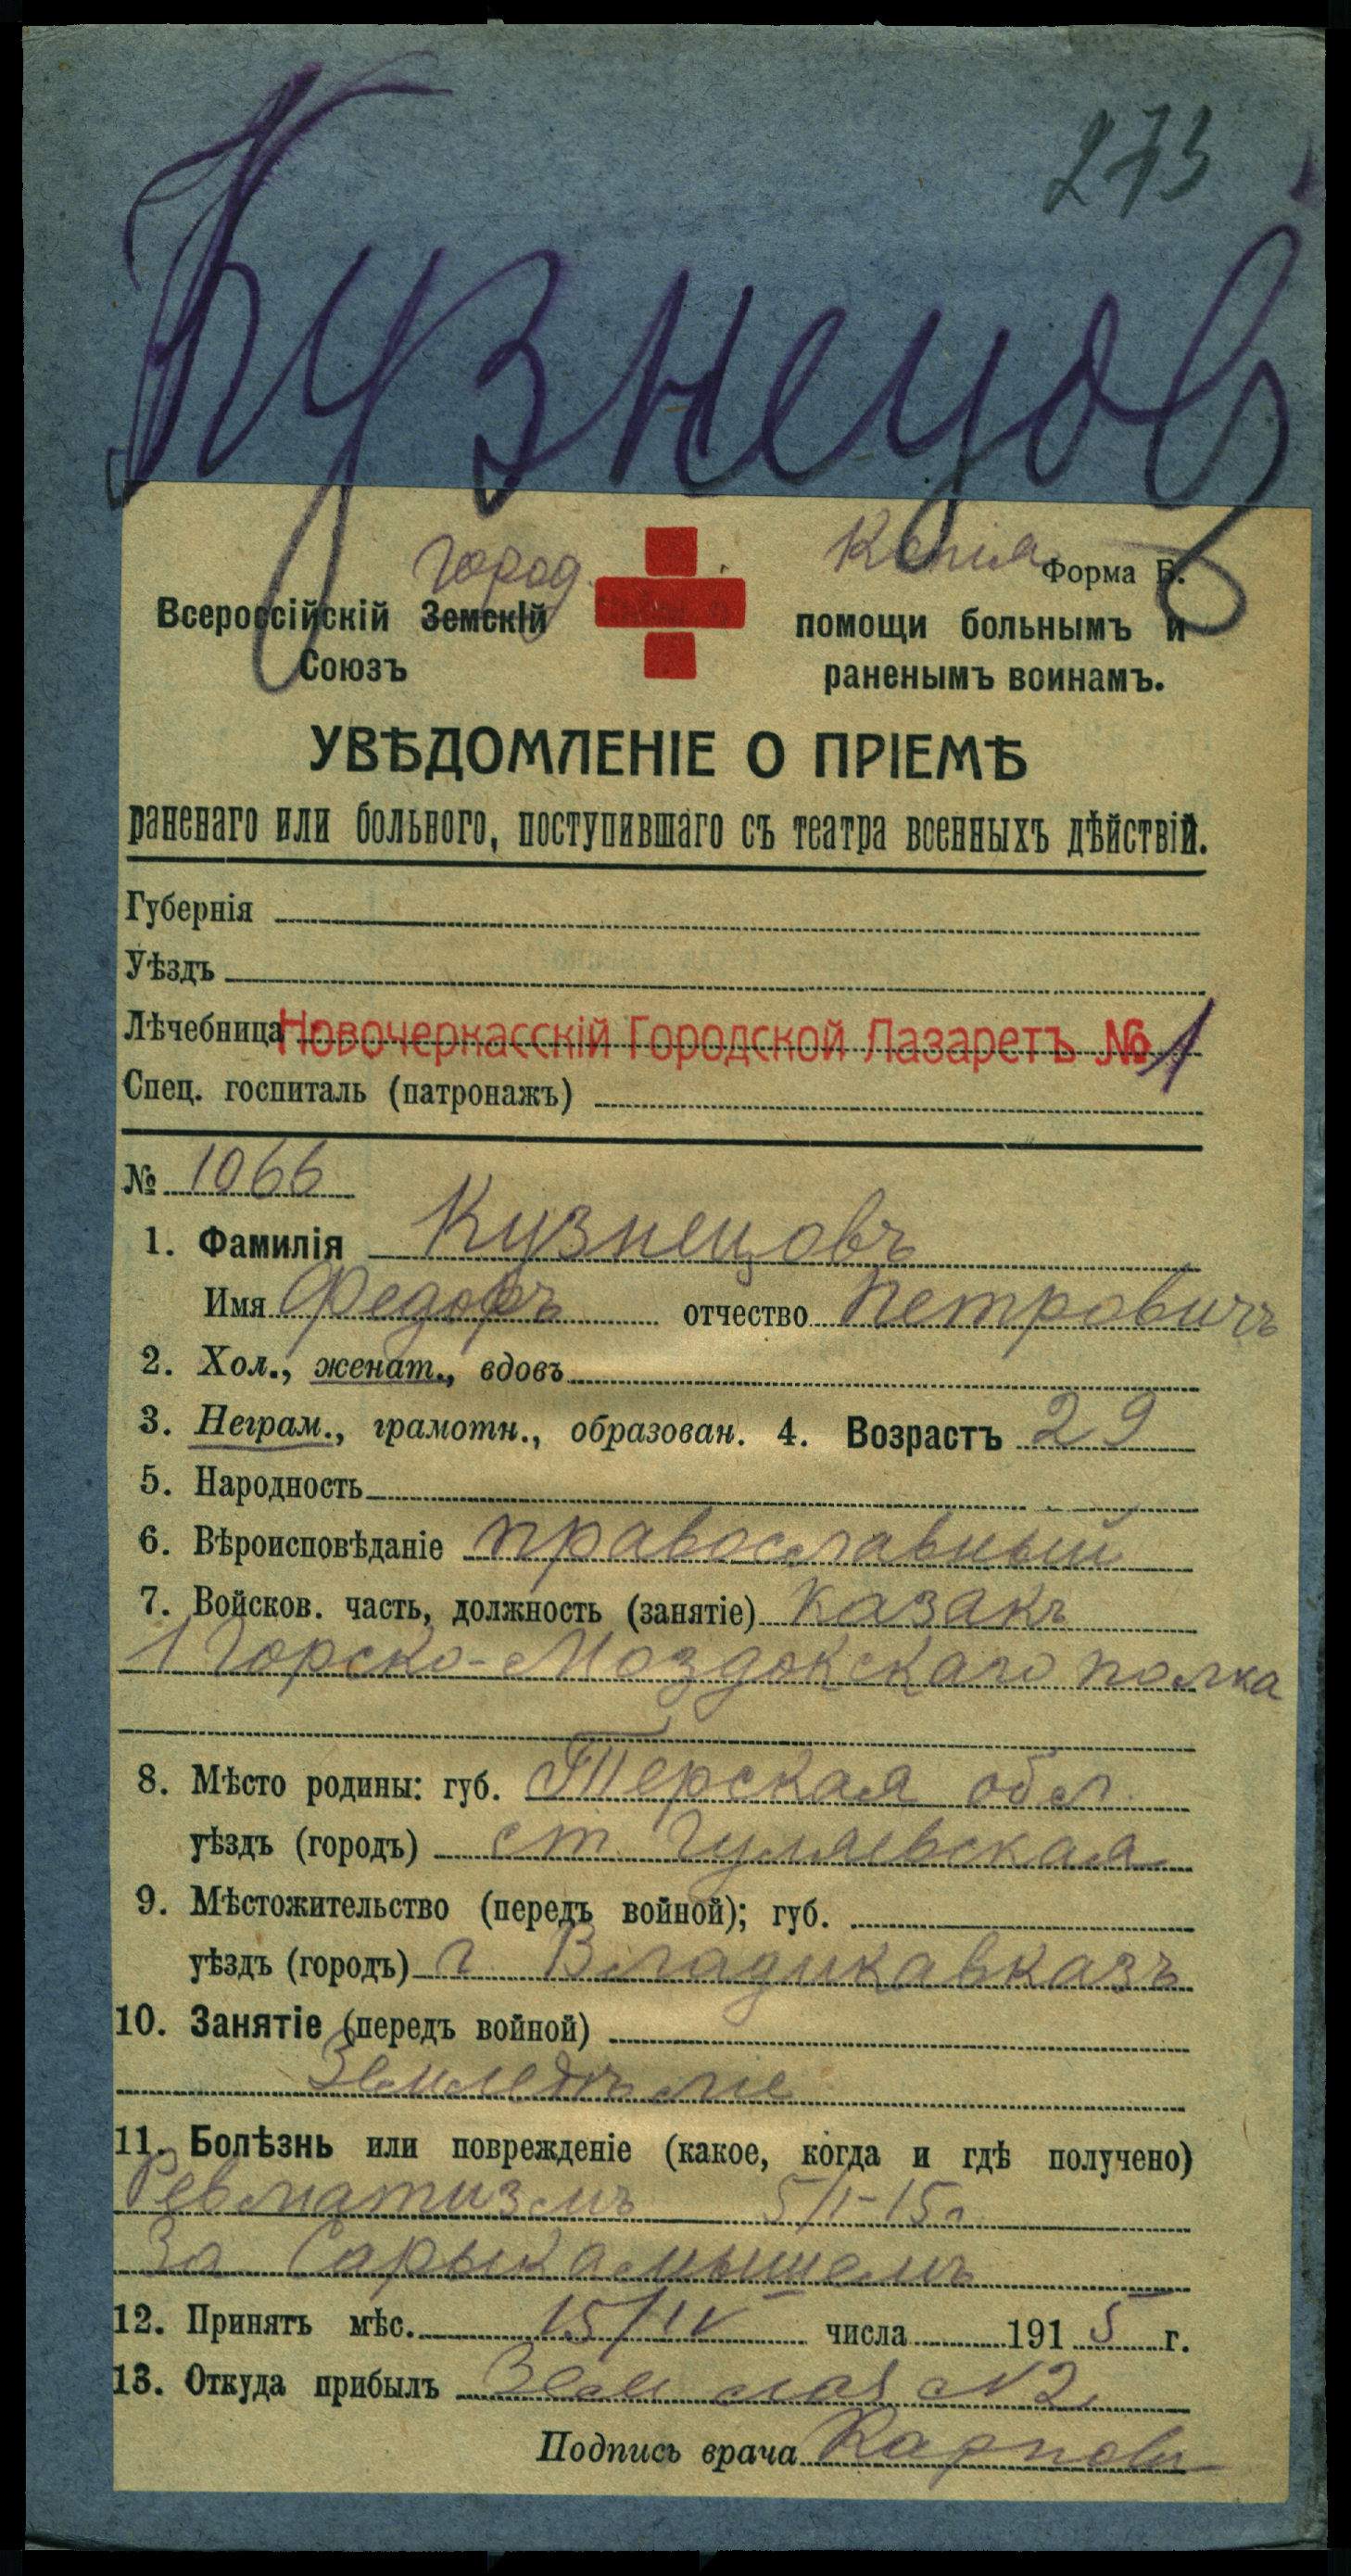 273
Кузнецов
Город. Копія Форма Б.
Всероссійскій Земскій помощи больнымъ и
Союзъ раненымъ воинамъ.
УВѢДОМЛЕНІЕ О ПРІЕМѢ
раненаго или больного, поступившаго съ театра военныхъ дѣйствій.
Губернія
Уѣздъ
Лѣчебница Новочеркасскій Городской Лазаретъ № 1
Спец. госпиталь (патронажъ)
№ 1066
1. Фамилія Кузнецовъ
Имя Федоръ отчество Петровичъ
2. Хол., женат., вдовъ
3. Неграм., грамотн., образован. 4. Возрастъ 29
5. Народность
6. Вѣроисповѣданіе православный
7. Войсков. часть, должность (занятіе) казакъ
1 Горско-Моздокскаго полка
8. Мѣсто родины: губ. Терская обл.
уѣздъ (городъ) ст.
9. Мѣстожительство (передъ войной); губ.
уѣздъ (городъ) г. Владикавказъ
10. Занятіе (передъ войной)
Земледѣліе
11. Болѣзнь или поврежденіе (какое, когда и гдѣ получено)
Ревматизмъ 5/I-15 г.
За Сарыкамышемъ
12. Принятъ мѣс. 15/IV числа 1915 г.
13. Откуда прибылъ №2
Подпись врача Карповъ